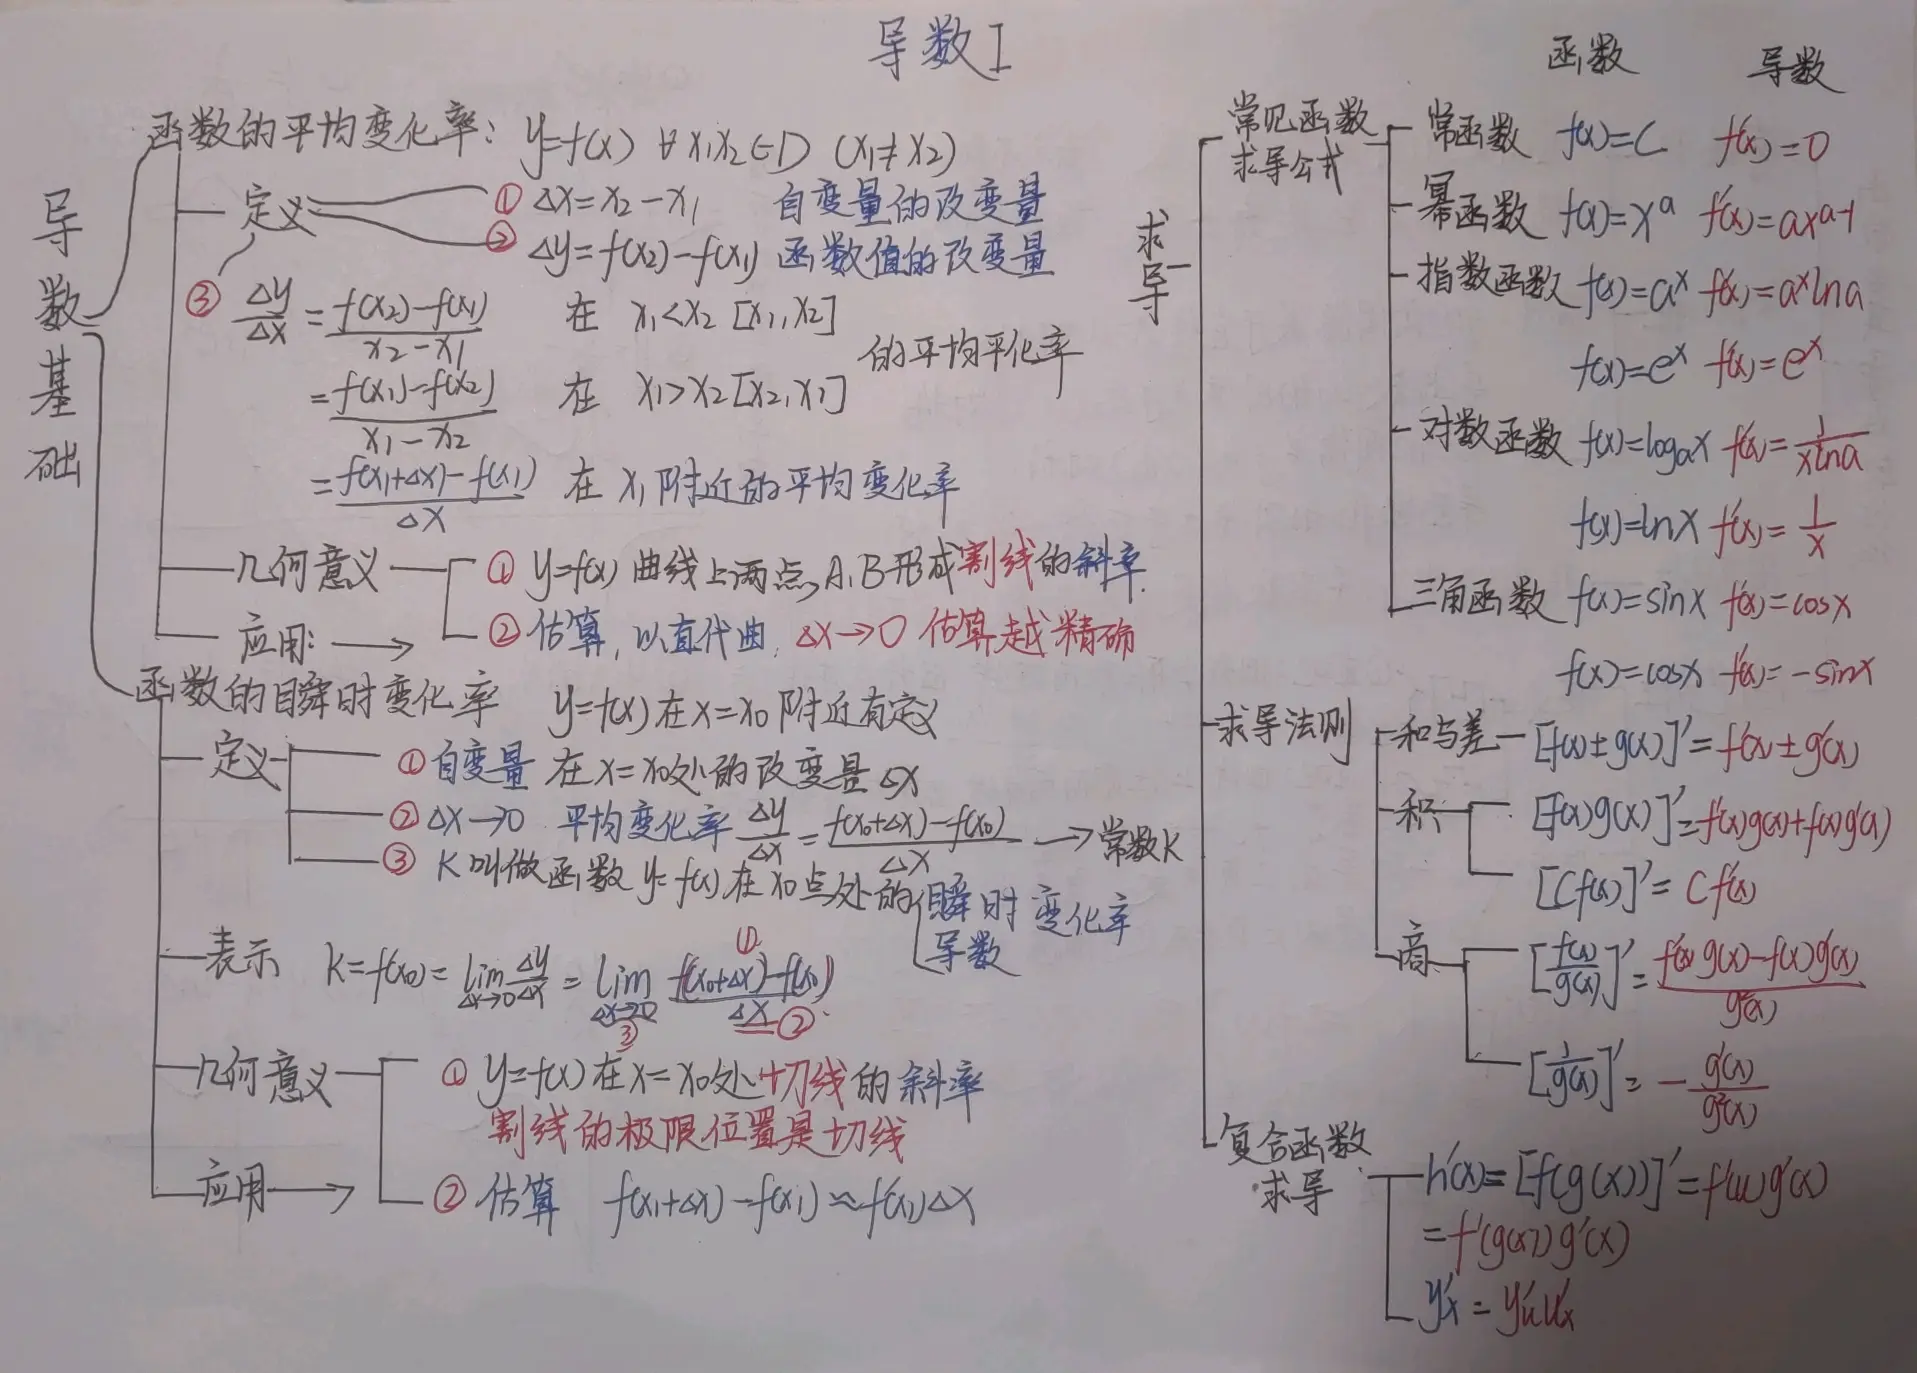 导数I
导数基础
函数的平均变化率: y=f(x) ∀x₁x₂∈D (x₁≠x₂)
定义
① Δx=x₂-x₁ 自变量的改变量
② Δy=f(x₂)-f(x₁) 函数值的改变量
③ Δy/Δx = (f(x₂)-f(x₁))/(x₂-x₁) 在 x₁<x₂ [x₁,x₂]
的平均平化率
= (f(x₁)-f(x₂))/(x₁-x₂) 在 x₁>x₂ [x₂,x₁]
= (f(x₁+Δx)-f(x₁))/Δx 在 x₁ 附近的平均变化率
几何意义 ① y=f(x) 曲线上两点,A,B形成割线的斜率.
应用: → ② 估算, 以直代曲, Δx→0 估算越精确
函数的瞬时变化率 y=f(x) 在 x=x₀ 附近有定义
定义 ① 自变量 在 x=x₀处的改变量 Δx
② Δx→0 平均变化率 Δy/Δx = (f(x₀+Δx)-f(x₀))/Δx → 常数k
③ K 叫做函数 y=f(x) 在 x₀点处的 瞬时变化率
导数
表示 k=f'(x₀)=lim Δx→0 Δy/Δx = lim Δx→0 (f(x₀+Δx)-f(x₀))/Δx ① ② ③
几何意义 ① y=f(x) 在 x=x₀处切线的斜率
割线的极限位置是切线
应用 → ② 估算 f(x₁+Δx)-f(x₁)≈f'(x₁)Δx
求导
函数 导数
常见函数求导公式
常函数 f(x)=C f'(x)=0
幂函数 f(x)=xᵃ f'(x)=axᵃ⁻¹
指数函数 f(x)=aˣ f'(x)=aˣlna
f(x)=eˣ f'(x)=eˣ
对数函数 f(x)=logₐx f'(x)=1/(xlna)
f(x)=lnx f'(x)=1/x
三角函数 f(x)=sinx f'(x)=cosx
f(x)=cosx f'(x)=-sinx
求导法则 和与差 [f(x)±g(x)]'=f'(x)±g'(x)
积 [f(x)g(x)]'=f'(x)g(x)+f(x)g'(x)
[Cf(x)]'=Cf'(x)
商 [f(x)/g(x)]'=(f'(x)g(x)-f(x)g'(x))/g²(x)
[1/g(x)]'=-g'(x)/g²(x)
复合函数求导 h'(x)=[f(g(x))]'=f'(u)g'(x)
=f'(g(x))g'(x)
y'ₓ=y'ᵤu'ₓ